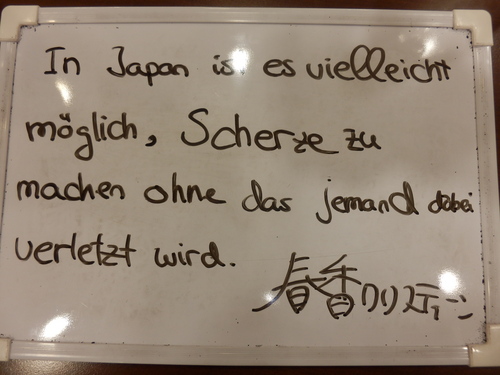 In Japan ist es vielleicht
möglich, Scherze zu
machen ohne das jemand dabei
verletzt wird.
春香クリスティーン